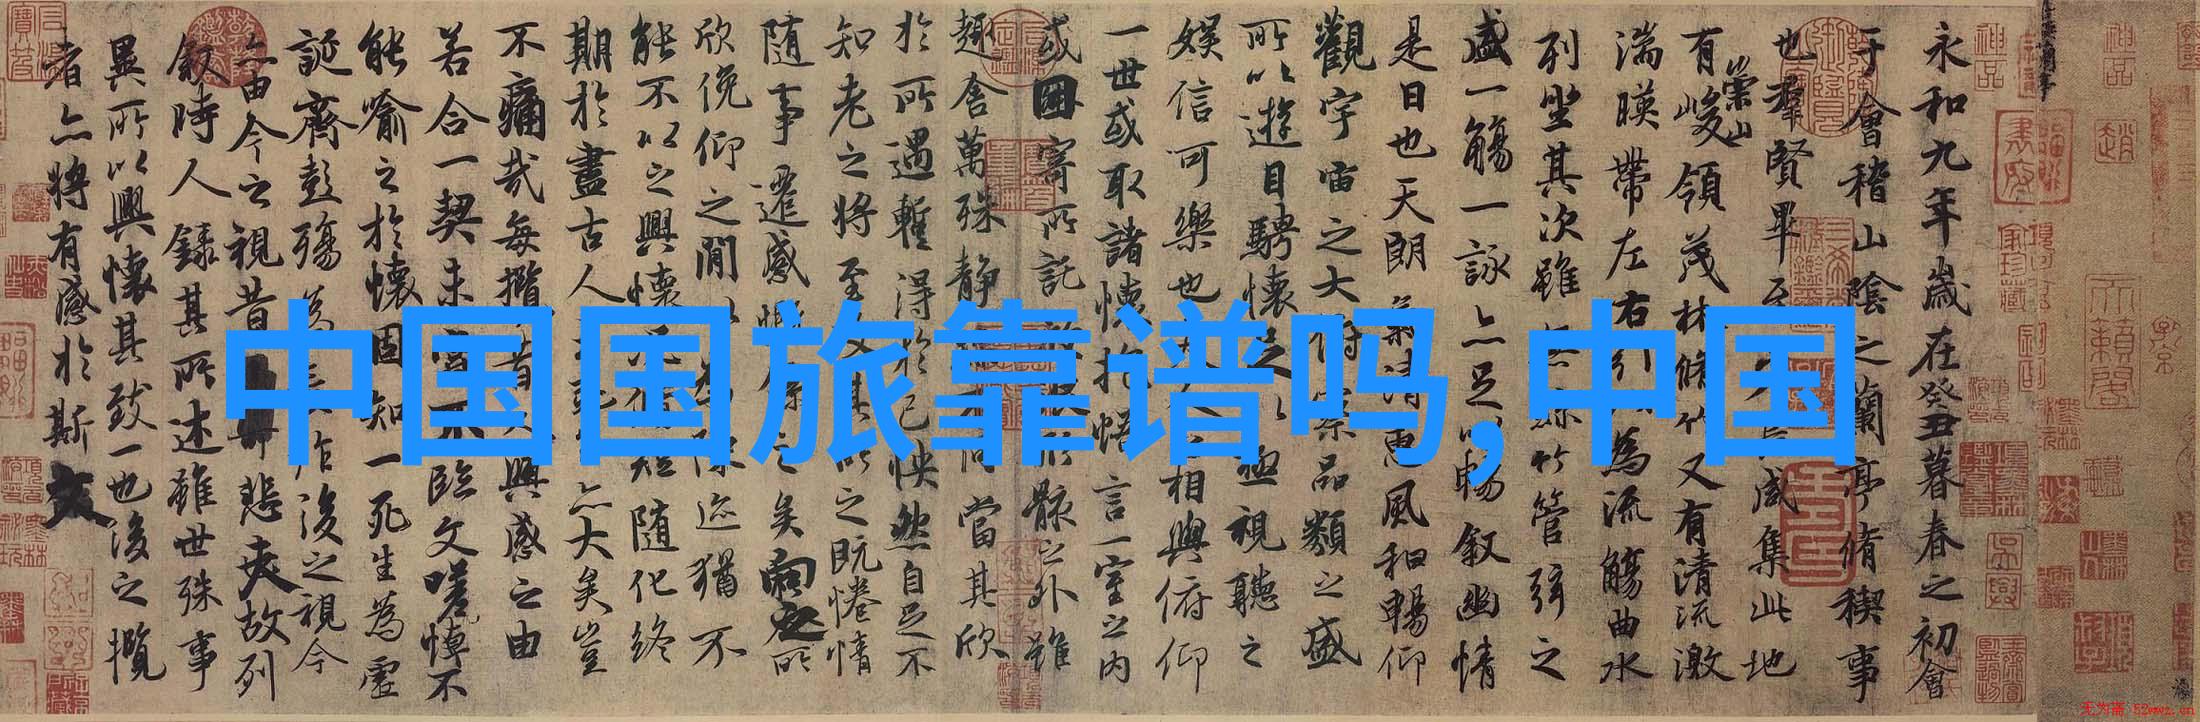 中国国旅靠谱吗,中国
永和九年歲在癸丑暮春之初會
于會稽山陰之蘭亭脩稧事
也羣賢畢至咸集此地
崇山
有峻領茂林脩竹又有清流激
湍暎帶左右引為流觴曲水
列坐其次雖竹管弦之
盛一觴一詠亦足以暢敘幽情
是日也天朗氣清惠風和暢仰
觀宇宙之大俯察品類之盛
所以遊目騁懷足以極視聽之
娛信可樂也夫人之相與俯仰
一世或取諸懷抱悟言一室之內
或因寄所託形骸之外雖
趣舍萬殊靜同當其欣
於所遇暫得於己怏然自足不
知老之將至及其所之既惓情
隨事遷感慨係之矣向之所
欣俛仰之閒以陳迹猶不
能不以之興懷短隨化終
期於盡古人亦大矣豈
不痛哉每攬昔人興感之由
若合一契未嘗不臨文嗟悼不
能喻之於懷固知一死生為虛
誕齊彭殤為作後之視今
亦由今之視昔悲夫故列
敘時人錄其所述雖世殊事
異所以興懷其致一也後之攬
者亦將有感於斯文
无为斋 52wwz.cn